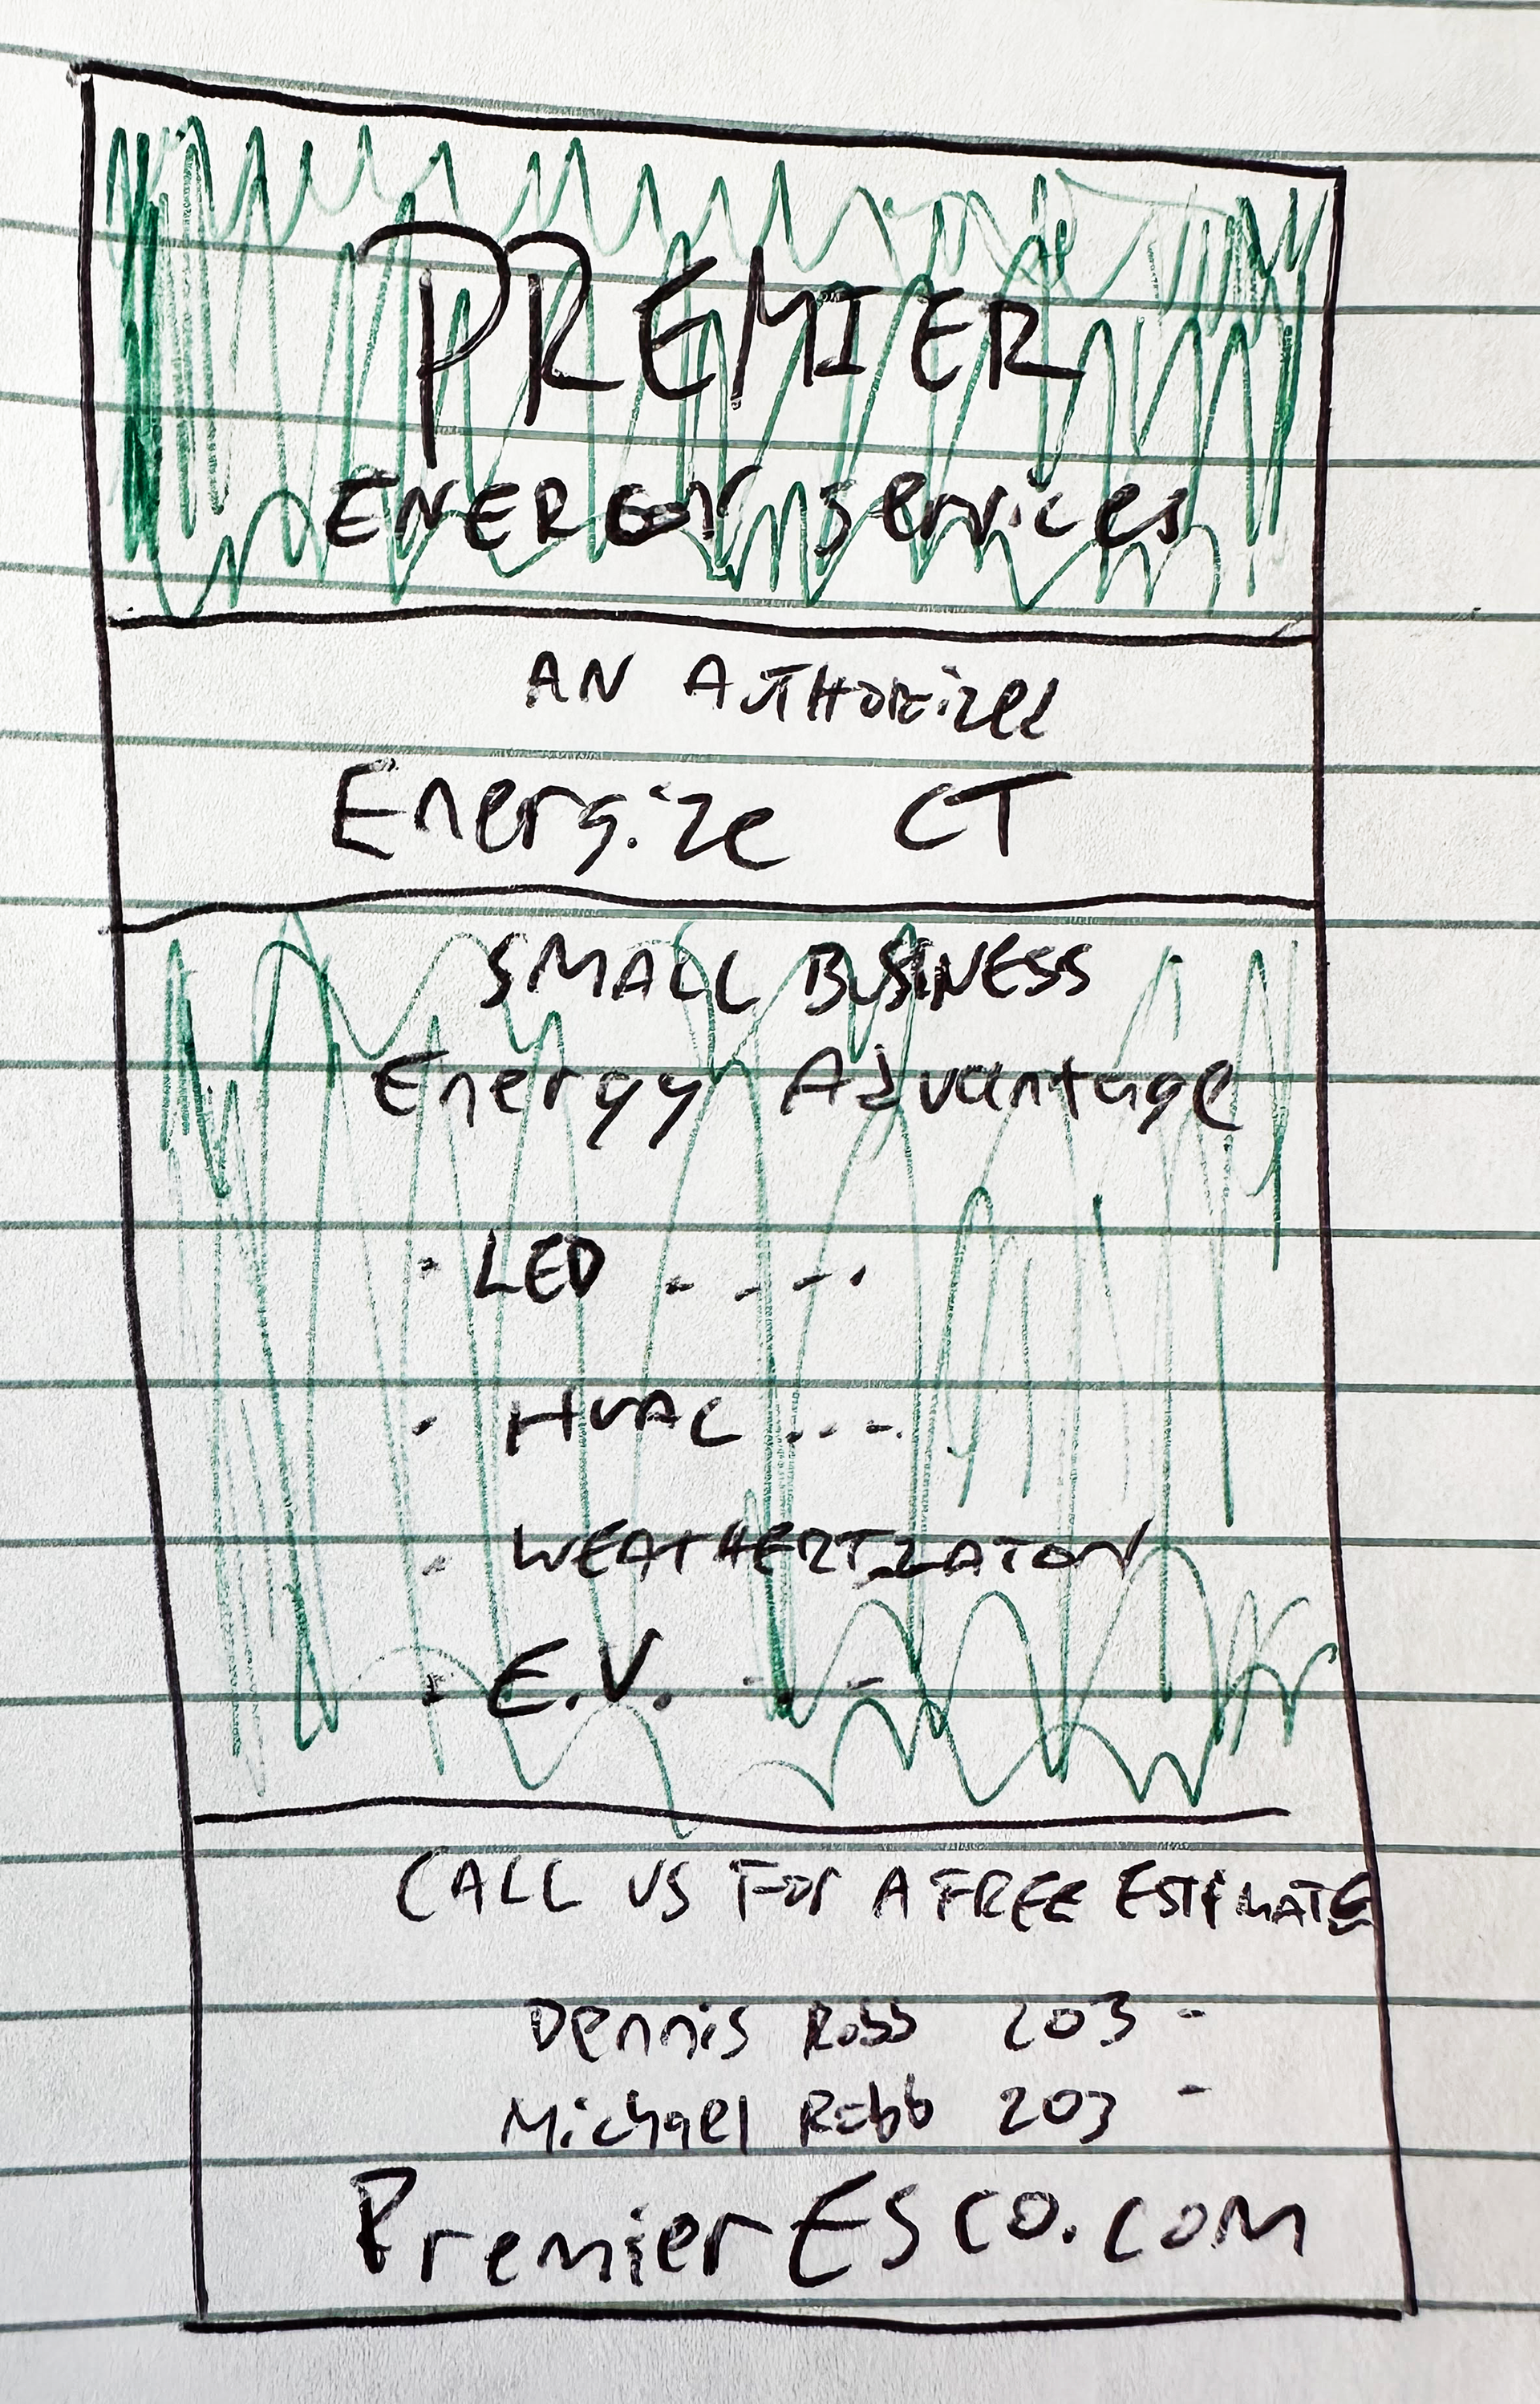 PREMIER
ENERGY Services
AN AUTHORized
Energize CT
SMALL BUSINESS
Energy Advantage
· LED - - - - ·
- HVAC . . - - .
- WEATHERIZATON
- E.V. - - -
CALL US FOr A FREE ESTIMATE
Dennis Robb 203 -
Michael Robb 203 -
PremierESCO.com